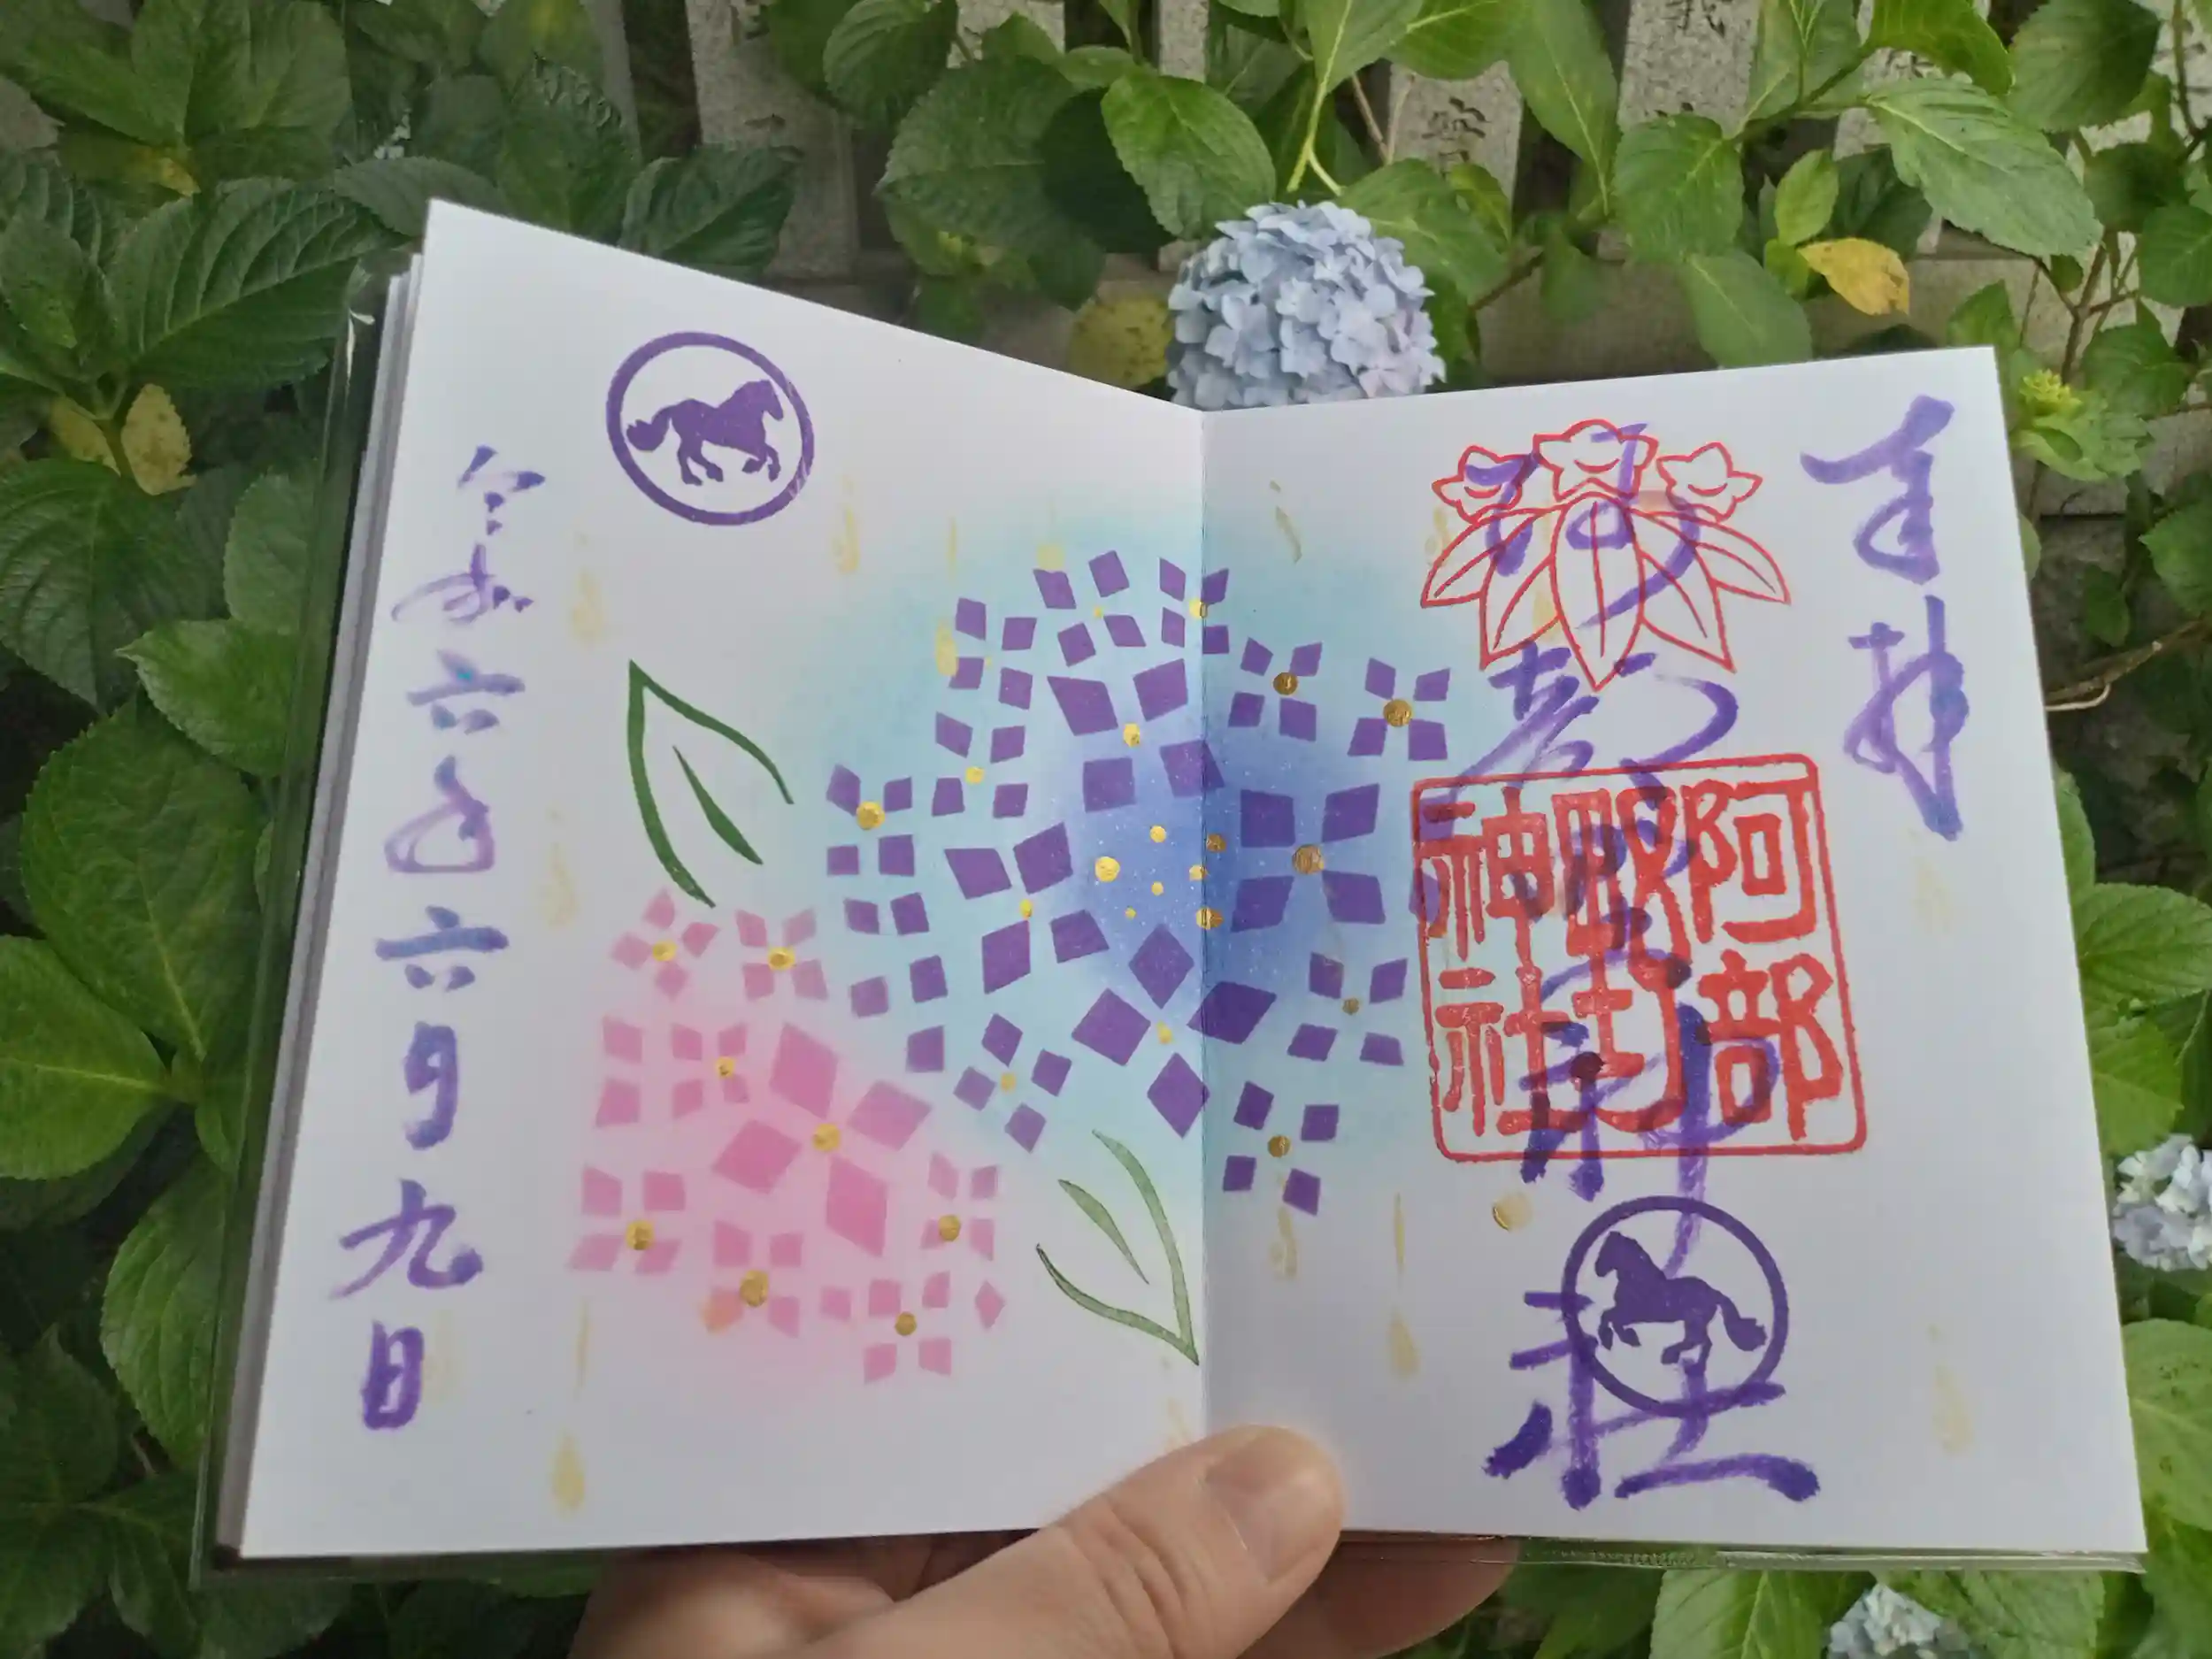 奉拝
阿部野神社
阿部野神社
令和六年六月九日